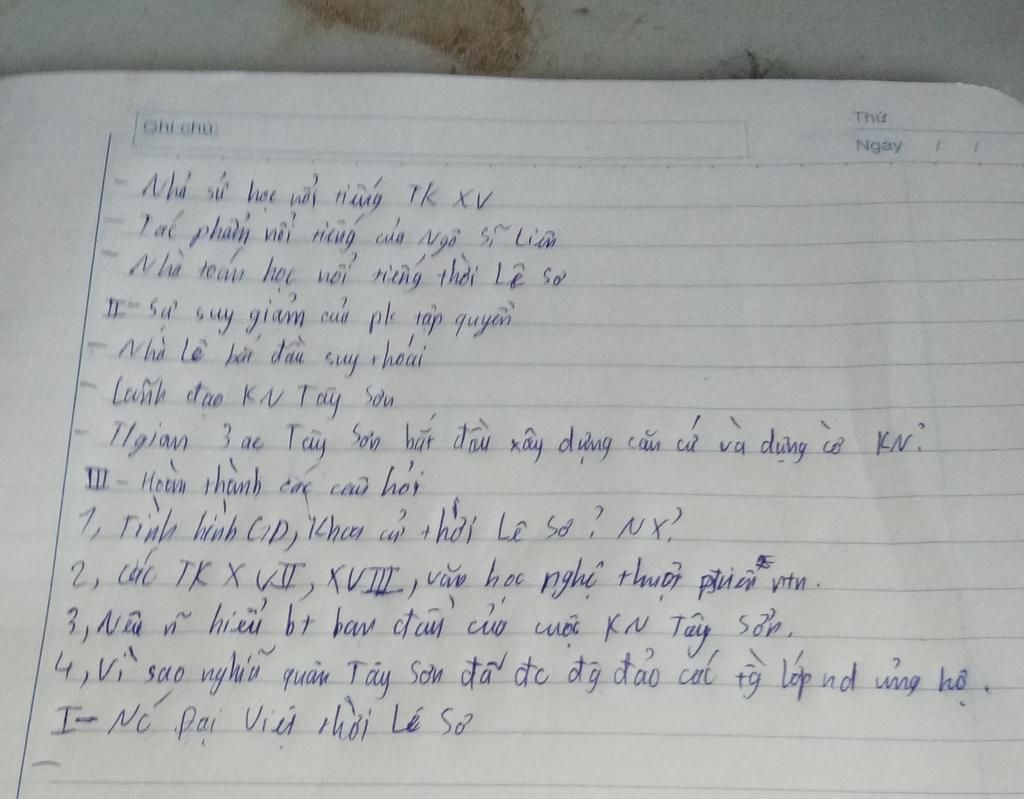 Ghi chú:
Thứ
Ngày / /
- Nhà sử học nổi tiếng TK XV
- Tác phẩm nổi tiếng của Ngô Sĩ Liên
- Nhà toán học nổi tiếng thời Lê Sơ
II - Sự suy giảm của pk tập quyền
- Nhà Lê bắt đầu suy thoái
- Lãnh đạo KN Tây Sơn
- T/gian 3 ae Tây Sơn bắt đầu xây dựng căn cứ và dựng cờ KN?
III - Hoàn thành các câu hỏi
1, Tình hình GD, Khoa cử thời Lê Sơ? NX?
2, Các TK XVII, XVIII, văn học nghệ thuật ptriển ntn.
3, Nêu n~ hiểu bt ban đầu của cuộc KN Tây Sơn.
4, Vì sao nghĩa quân Tây Sơn đã đc đg đảo các tg lớp nd ủng hộ.
I - Nc Đại Việt thời Lê Sơ
-